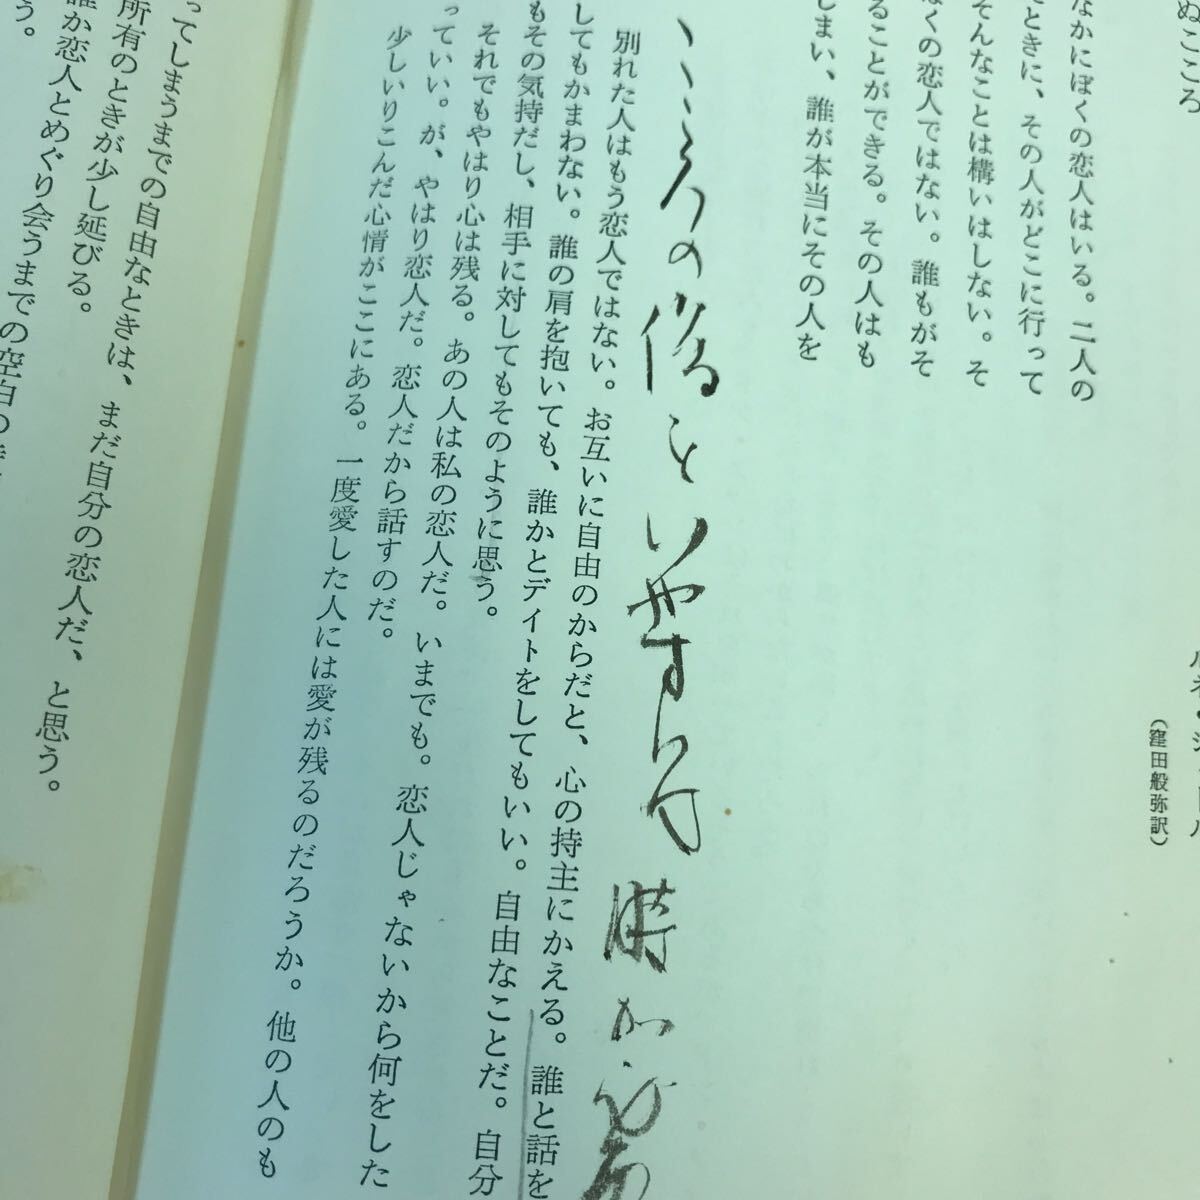 ぬこころ
(窪田般弥訳)
なかにぼくの恋人はいる。二人の
たときに、その人がどこに行って
そんなことは構いはしない。そ
ぼくの恋人ではない。誰もがそ
ることができる。その人はも
しまい、誰が本当にその人を
こころの傷をいやすのは時か
別れた人はもう恋人ではない。お互いに自由のからだと、心の持主にかえる。誰と話を
してもかまわない。誰の肩を抱いても、誰かとデイトをしてもいい。自由なことだ。自分
もその気持だし、相手に対してもそのように思う。
それでもやはり心は残る。あの人は私の恋人だ。いまでも。恋人じゃないから何をした
っていい。が、やはり恋人だ。恋人だから話すのだ。
少しいりこんだ心情がここにある。一度愛した人には愛が残るのだろうか。他の人のも
ってしまうまでの自由なときは、まだ自分の恋人だ、と思う。
所有のときが少し延びる。
誰か恋人とめぐり会うまでの空白の
う。